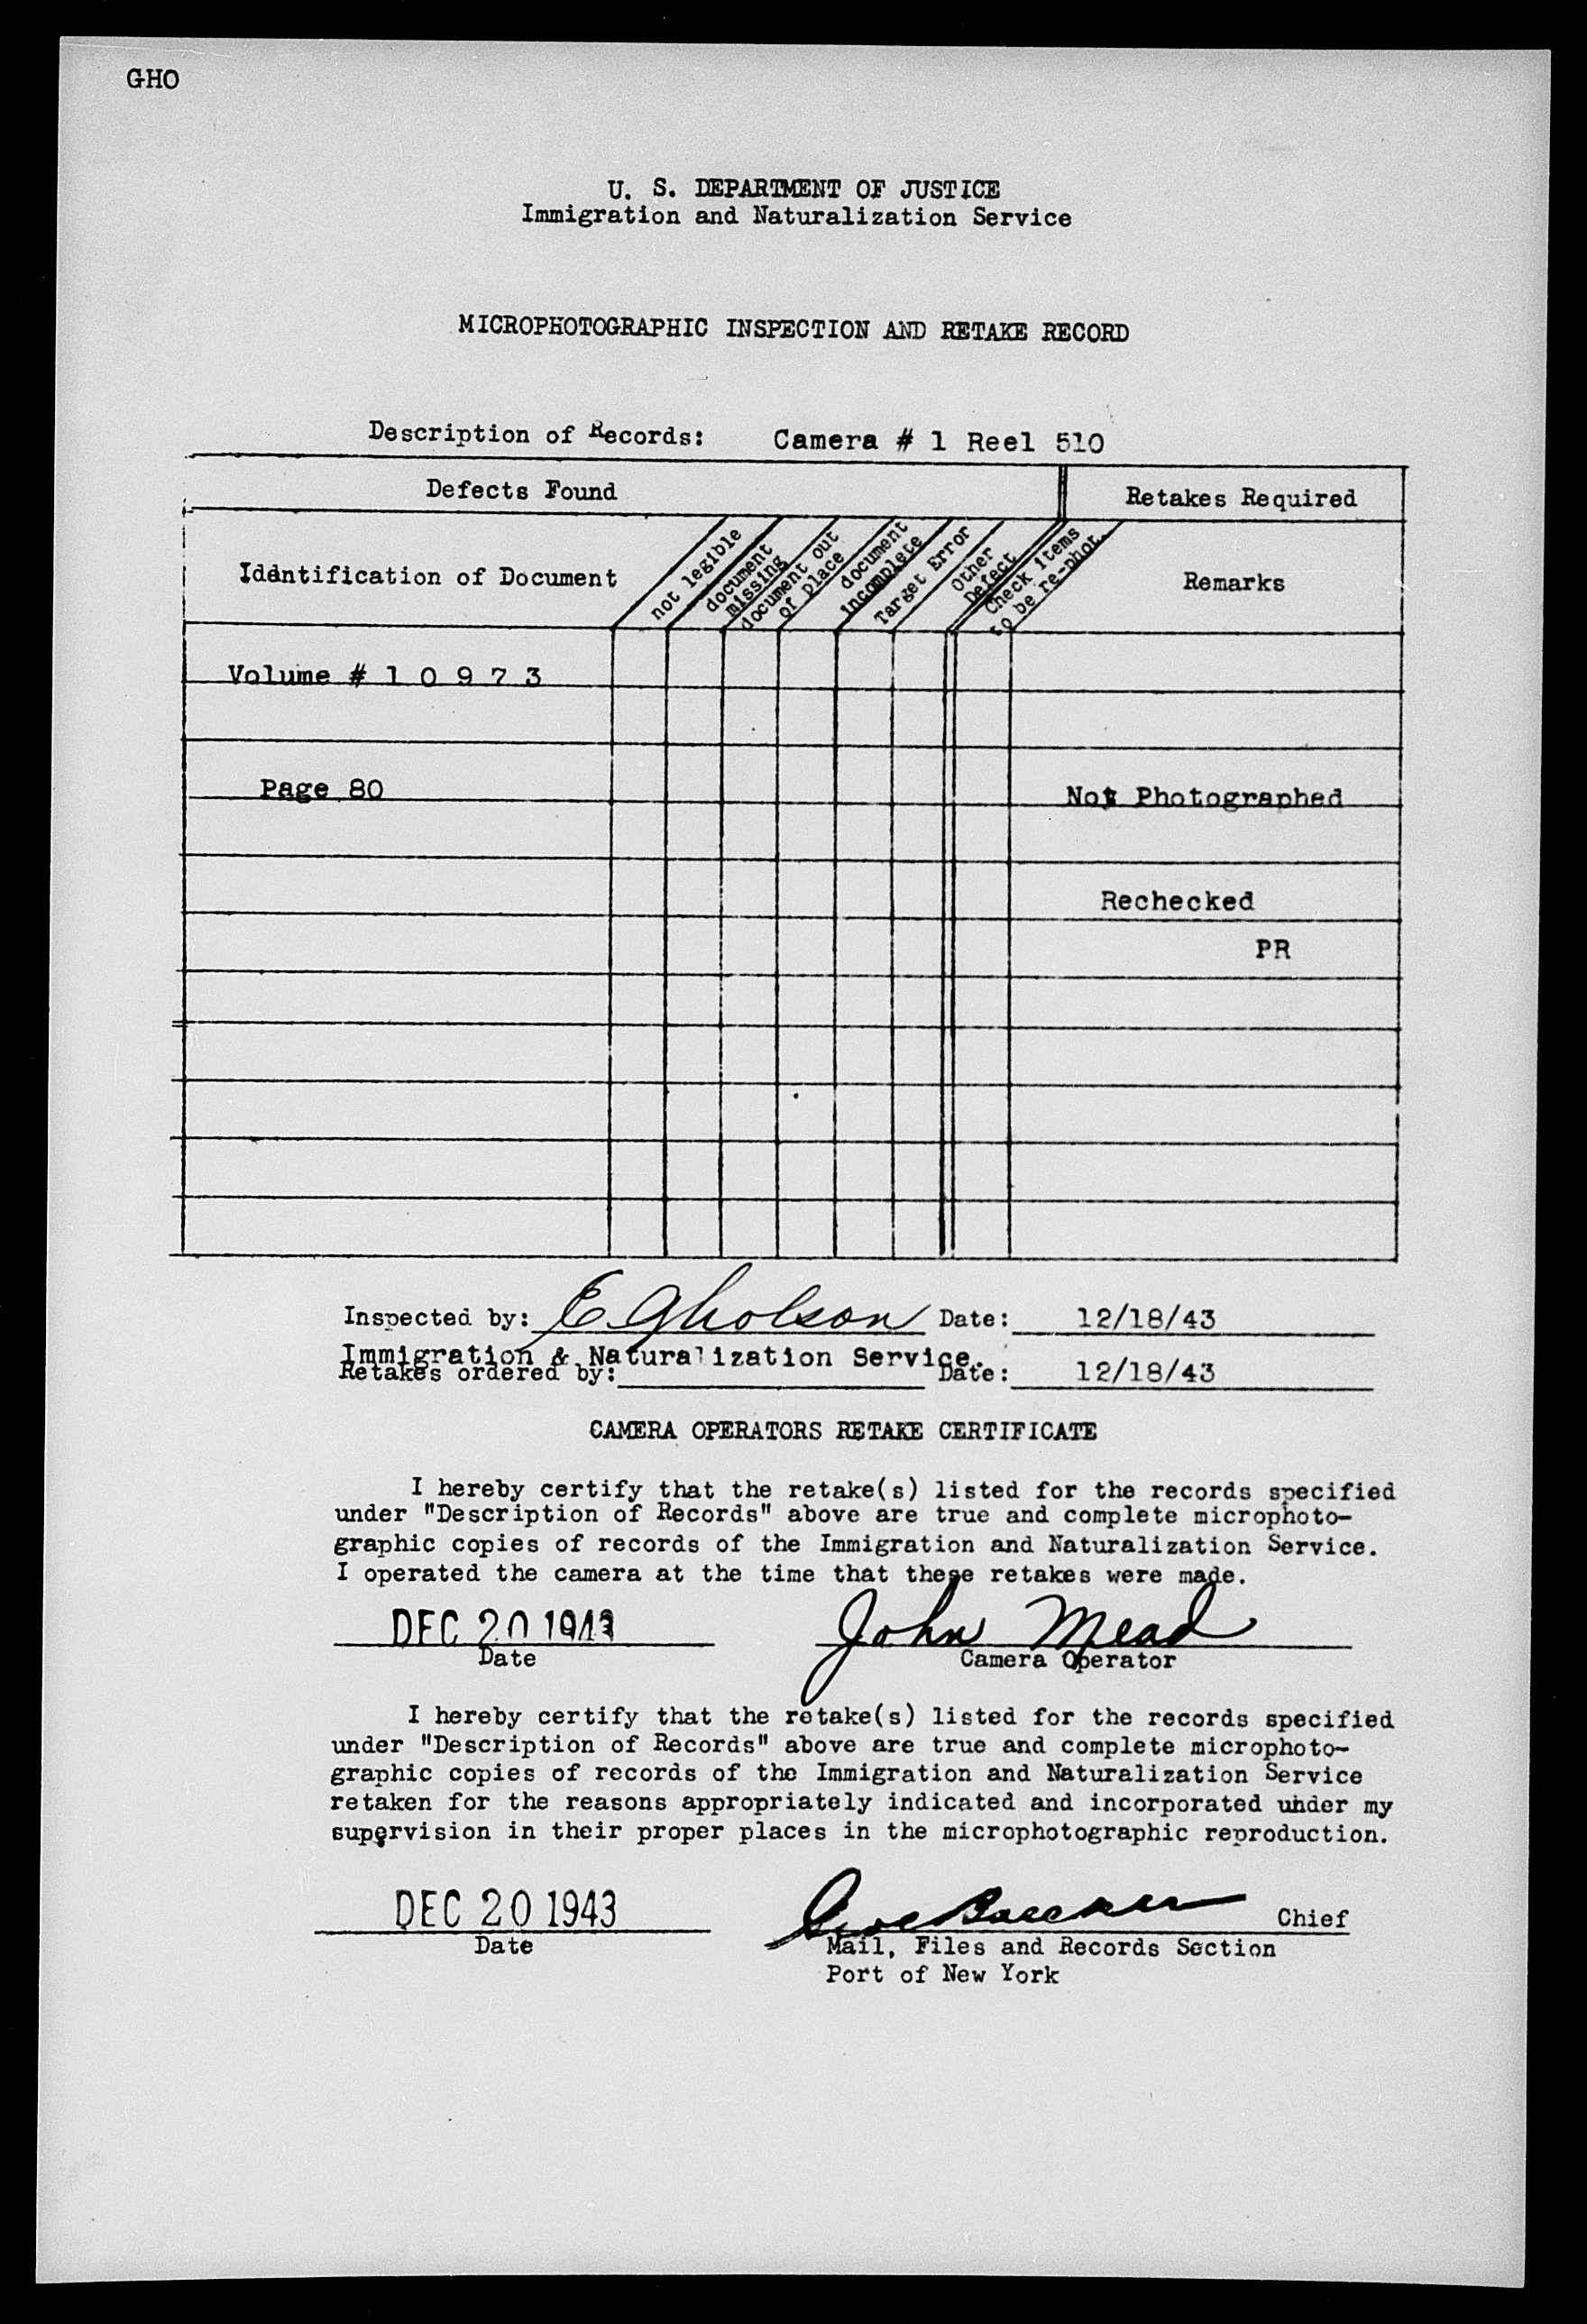 GHO
U. S. DEPARTMENT OF JUSTICE
Immigration and Naturalization Service
MICROPHOTOGRAPHIC INSPECTION AND RETAKE RECORD
Description of Records: Camera # 1 Reel 510
Defects Found
Retakes Required
Idantification of Document
not legible
document missing
document out of place
document incomplete
Target Error
Other Defect
Check items to be re-phot.
Remarks
Volume # 1 0 9 7 3
Page 80
Not Photographed
Rechecked
PR
Inspected by: E Gholson Date: 12/18/43
Immigration & Naturalization Service.
Retakes ordered by: Date: 12/18/43
CAMERA OPERATORS RETAKE CERTIFICATE
I hereby certify that the retake(s) listed for the records specified
under "Description of Records" above are true and complete microphoto-
graphic copies of records of the Immigration and Naturalization Service.
I operated the camera at the time that these retakes were made.
DEC 20 1943 John Mead
Date Camera Operator
I hereby certify that the retake(s) listed for the records specified
under "Description of Records" above are true and complete microphoto-
graphic copies of records of the Immigration and Naturalization Service
retaken for the reasons appropriately indicated and incorporated under my
supervision in their proper places in the microphotographic reproduction.
DEC 20 1943 Chief
Date Mail, Files and Records Section
Port of New York